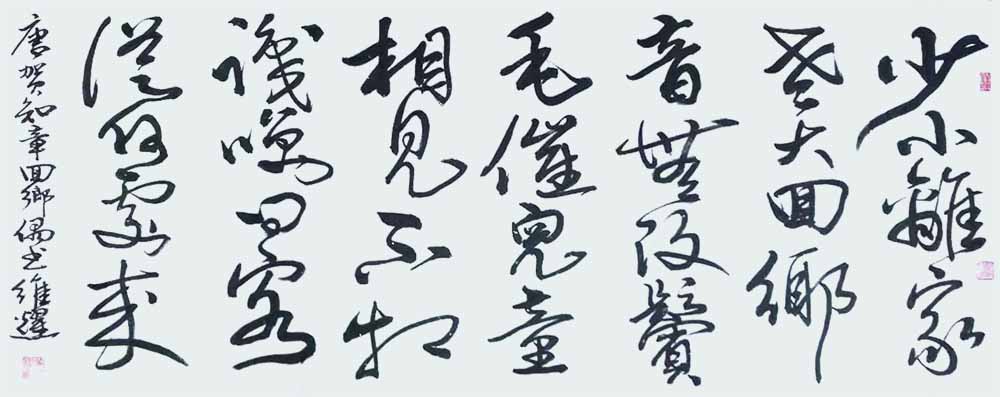 少小離家
老大回鄉
音無改鬢
毛催兒童
相見不相
識問客
從何處來
唐賀知章回鄉偶书維